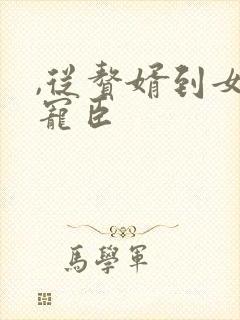 ,从赘婿到女
寵臣
馬學軍